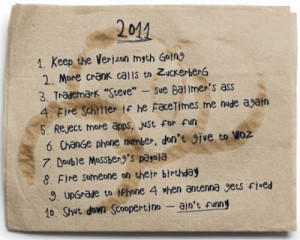 2011
1. Keep the Verizon myth going
2. More crank calls to Zuckerberg
3. Trademark "Steve" — sue Ballmer's ass
4. Fire Schiller if he FaceTimes me nude again
5. Reject more apps, just for fun
6. Change phone number, don't give to WOZ
7. Double Mossberg's payola
8. Fire someone on their birthday
9. Upgrade to iPhone 4 when antenna gets fixed
10. Shut down Scoopertino — ain't funny